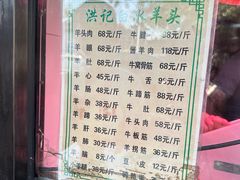 洪记白水羊头
羊头肉 68元/斤 牛腱 68元/斤
羊眼 68元/斤 蟹羊肉 118元/斤
羊肚 68元/斤 牛窝骨筋 68元/斤
羊心 45元/斤 牛舌 95元/斤
羊肠 48元/斤 牛蹄筋 88元/斤
羊杂 48元/斤 牛肚 68元/斤
羊蹄 48元/斤 牛头肉 58元/斤
羊肝 36元/斤 牛板筋 48元/斤
羊肺 30元/斤 羊拐筋 36元/斤
羊脑 8元/个 皮 12元/斤
38元/斤